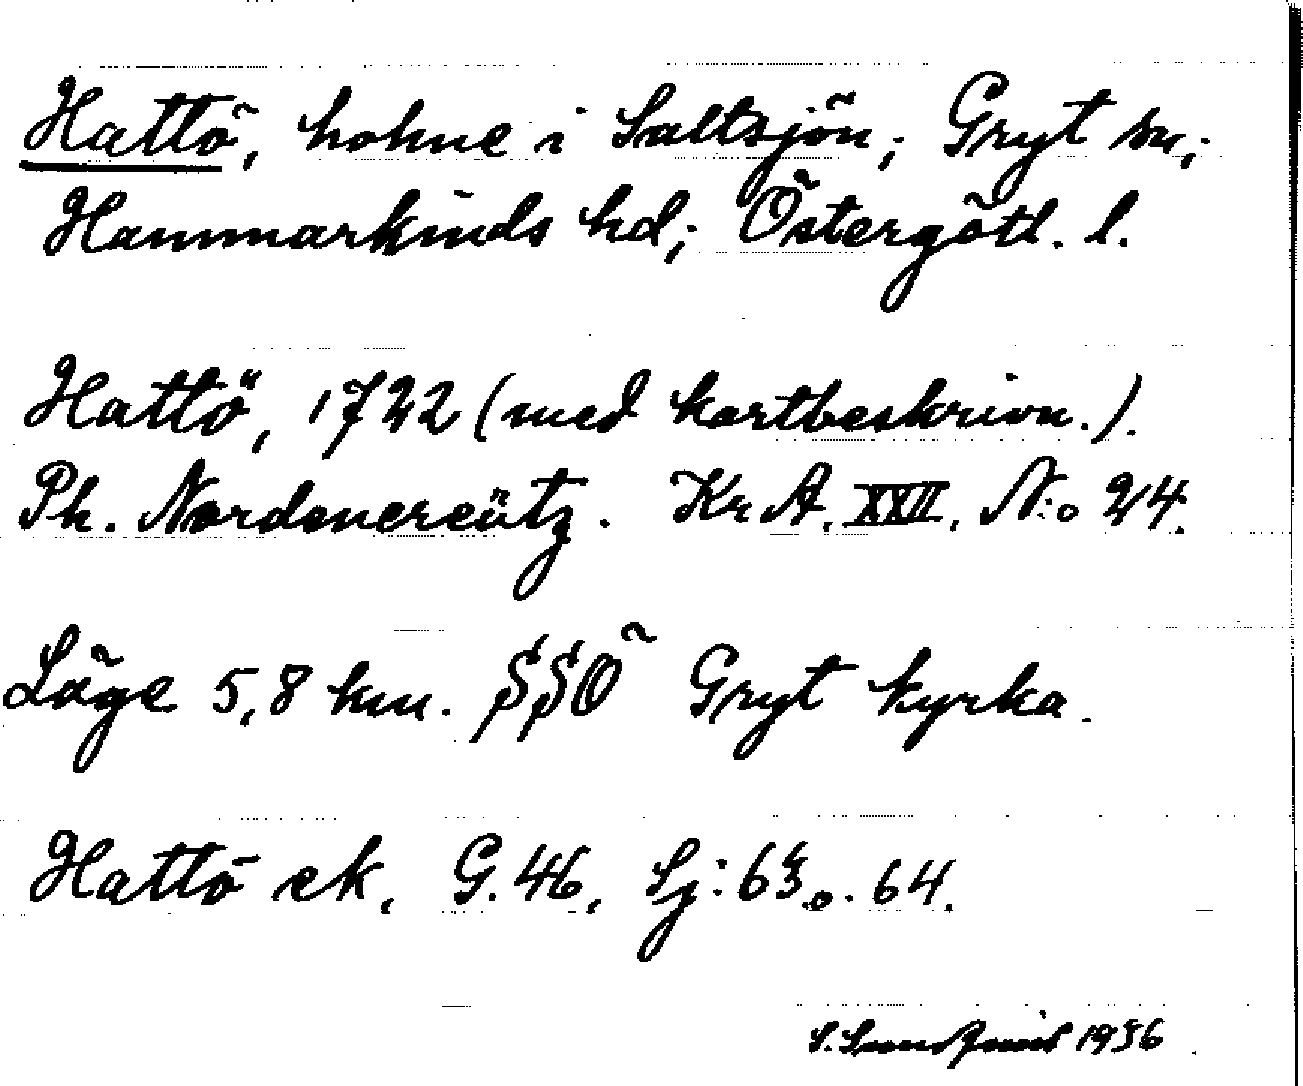 Hattö, holme i Saltsjön; Gryt sn;
Hammarkinds hd; Östergötl. l.
Hattö, 1722 (med kartbeskrivn.).
Ph. Nordencreütz. Kr A. XXII. N:o 24.
Läge 5,8 km. SSO Gryt kyrka.
Hattö ek, G. 46, Sj: 63 o. 64.
S. 1936